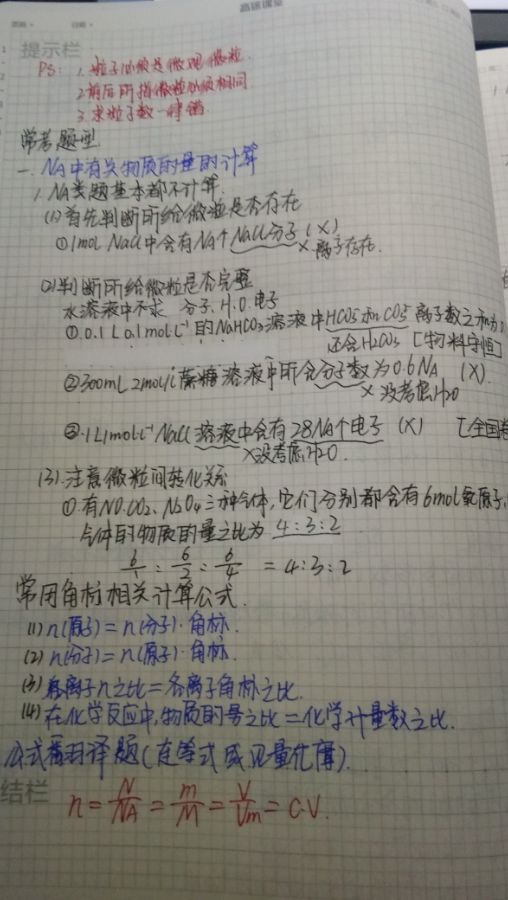 提示栏
PS: 1.粒子必须是微观微粒.
2.前后所指微粒必须相同
3.求粒子数一时错
常考题型
一. NA中有关物质的量的计算
1.NA类题基本都不计算.
(1)首先判断所给微粒是否存在
①1mol NaCl中含有NA个NaCl分子 (×)
× 离子存在.
(2)判断所给微粒是否完整
水溶液中不求 分子、H、O、电子
①0.1L 0.1mol·L⁻¹的NaHCO3溶液中HCO3⁻和CO3²⁻离子数之和为0
还含H2CO3 [物料守恒]
②300mL 2mol/L蔗糖溶液中所含分子数为0.6NA (×).
× 没考虑H2O
③.1L 1mol·L⁻¹ NaCl溶液中含有28NA个电子 (×) [全国卷
×没考虑H2O.
(3).注意微粒间转化关系
①.有NO、CO2、N2O4三种气体,它们分别都含有6mol氧原子,
气体的物质的量之比为 4:3:2
6/1 : 6/2 : 6/4 = 4:3:2
常用角标相关计算公式.
(1) n(原子)=n(分子)·角标.
(2) n(分子)=n(原子)·角标.
(3) 各离子n之比=各离子角标之比.
(4) 在化学反应中,物质的量之比=化学计量数之比.
公式翻译题(连等式
结栏
n = N/NA = m/M = V/Vm = C·V.